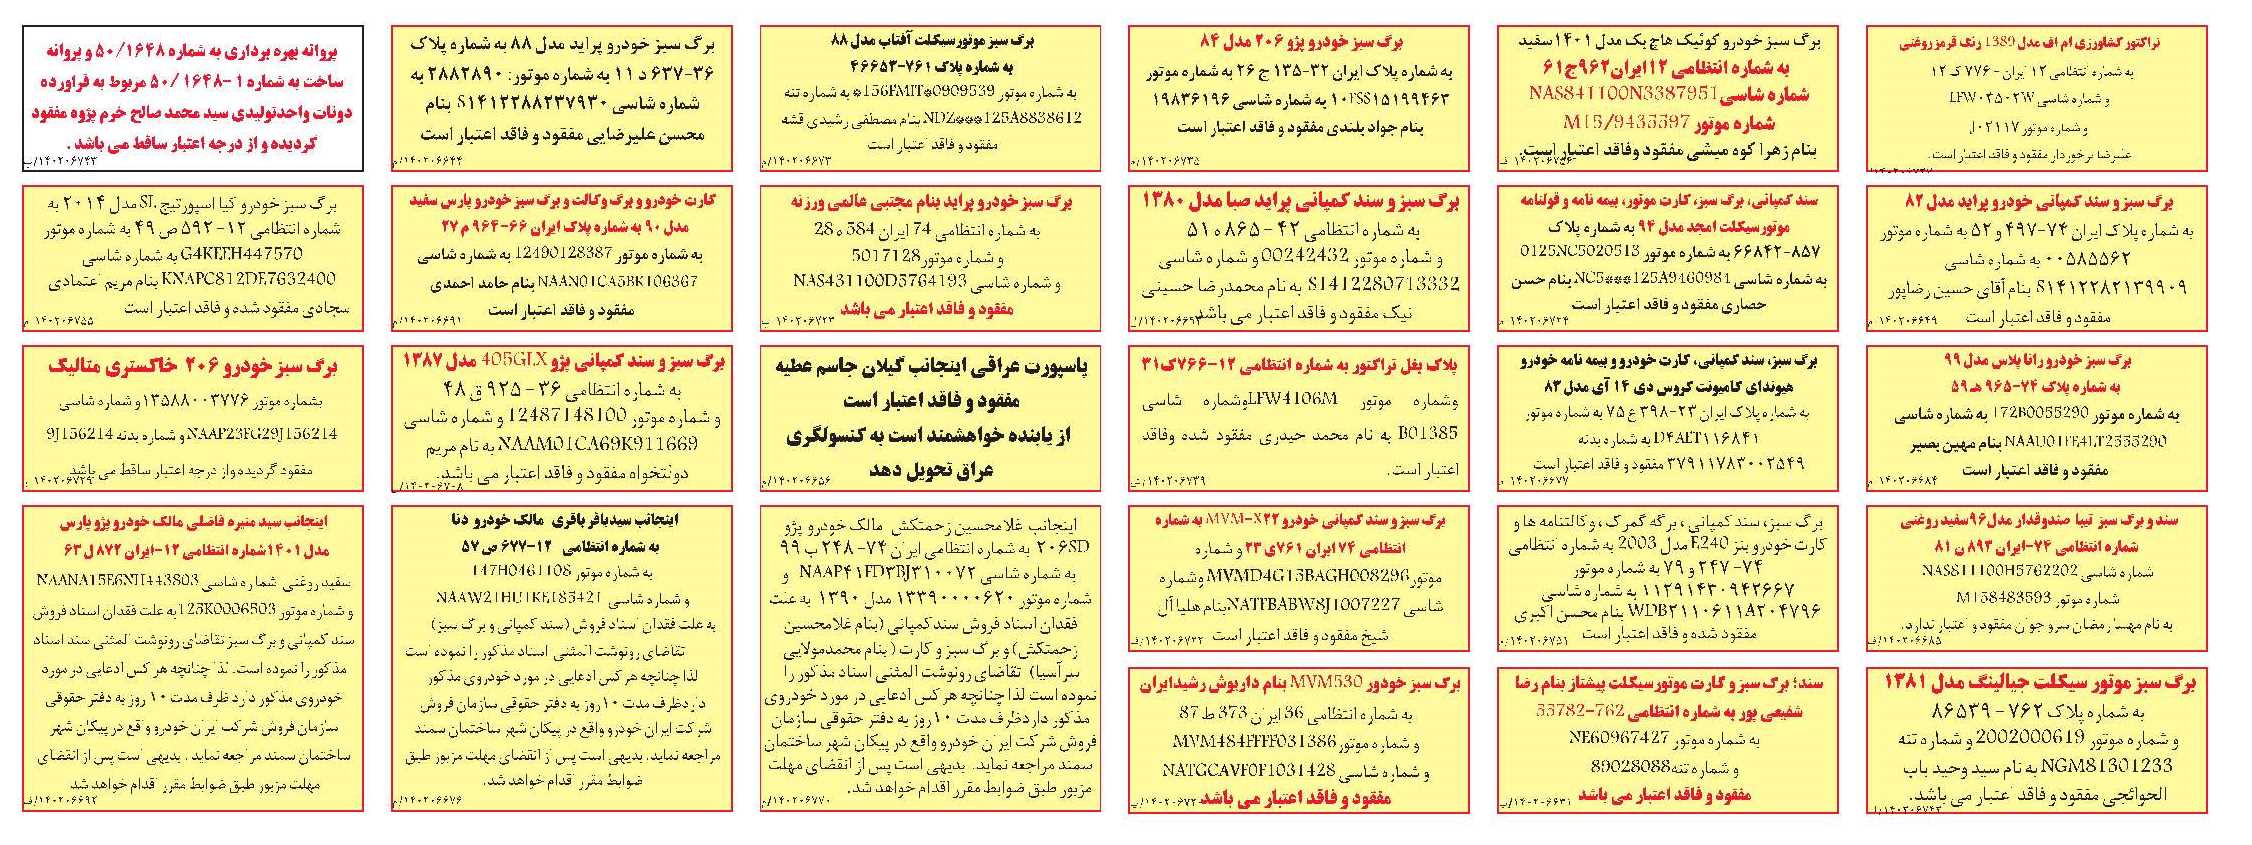 تراکتور کشاورزی ام اف مدل 1389 رنگ قرمز روغنی
به شماره انتظامی ۱۲ ایران - ۷۷۶ ک ۱۲
و شماره شاسی LFW۰۳۵۰۲W
و شماره موتور J۰۲۱۱۷
علیرضا برخوردار مفقود و فاقد اعتبار است.
برگ سبز و سند کمپانی خودرو پراید مدل ۸۲
به شماره پلاک ایران ۷۴-۴۹۷ و ۵۲ به شماره موتور
۰۰۵۸۵۵۶۲ به شماره شاسی
S۱۴۱۲۲۸۲۱۳۹۹۰۹ بنام آقای حسین رضاپور
مفقود و فاقد اعتبار است
۱۴۰۲۰۶۶۴۹/م
برگ سبز خودرو رانا پلاس مدل ۹۹
به شماره پلاک ۷۴-۹۶۵ هـ ۵۹
به شماره موتور 172B0055290 به شماره شاسی
NAAU01FE4LT2555290 بنام مهین بصیر
مفقود و فاقد اعتبار است
۱۴۰۲۰۶۶۸۴/م
سند و برگ سبز تیبا صندوقدار مدل۹۶سفید روغنی
شماره انتظامی ۷۴-ایران ۸۹۳ ن ۸۱
شماره شاسی NAS811100H5762202
شماره موتور M158483593
به نام مهسا رمضان سرو جوان مفقود و اعتبار ندارد.
۱۴۰۲۰۶۶۸۵/ف
برگ سبز موتور سیکلت جیالینگ مدل ۱۳۸۱
به شماره پلاک ۷۶۲ - ۸۶۵۳۹
و شماره موتور 2002000619 و شماره تنه
NGM81301233 به نام سید وحید باب
الحوائجی مفقود و فاقد اعتبار می باشد.
برگ سبز خودرو کوئیک هاچ بک مدل ۱۴۰۱سفید
به شماره انتظامی ۱۲ایران۹۶۲ج۶۱
شماره شاسی NAS841100N3387951
شماره موتور M15/9435597
بنام زهرا کوه میشی مفقود وفاقد اعتبار است.
سند کمپانی، برگ سبز، کارت موتور، بیمه نامه و قولنامه
موتورسیکلت امجد مدل ۹۴ به شماره پلاک
۸۵۷-۶۶۸۴۲ به شماره موتور 0125NC5020513
به شماره شاسی NC5***125A9460984بنام حسن
حصاری مفقود و فاقد اعتبار است
۱۴۰۲۰۶۷۲۴/م
برگ سبز، سند کمپانی، کارت خودرو و بیمه نامه خودرو
هیوندای کامیونت کروس دی ۱۴ آی مدل ۸۳
به شماره پلاک ایران ۲۳-۳۹۸ ع ۷۵ به شماره موتور
D۴ALT۱۱۶۸۴۱ به شماره بدنه
۳۷۹۱۱۷۸۳۰۰۲۵۴۹ مفقود و فاقد اعتبار است
۱۴۰۲۰۶۶۷۷/م
برگ سبز، سند کمپانی، برگه گمرک، وکالتنامه ها و
کارت خودرو بنز E240 مدل 2003 به شماره انتظامی
۷۴-۲۴۷ و ۷۹ به شماره موتور
۱۱۲۹۱۴۳۰۹۴۲۶۶۷ به شماره شاسی
WDB۲۱۱۰۶۱۱A۲۰۴۷۹۶ بنام محسن اکبری
مفقود شده و فاقد اعتبار است
سند؛ برگ سبز و کارت موتورسیکلت پیشتاز بنام رضا
شفیعی پور به شماره انتظامی 762-55782
به شماره موتور NE60967427
و شماره تنه89028088
مفقود و فاقد اعتبار می باشد
۱۴۰۲۰۶۶۳۱/ب
برگ سبز خودرو پژو ۲۰۶ مدل ۸۴
به شماره پلاک ایران ۳۲-۱۳۵ ج ۲۶ به شماره موتور
۱۰FSS۱۵۱۹۹۴۶۳ به شماره شاسی ۱۹۸۳۶۱۹۶
بنام جواد بلندی مفقود و فاقد اعتبار است
۱۴۰۲۰۶۷۳۵/م
برگ سبز و سند کمپانی پراید صبا مدل ۱۳۸۰
به شماره انتظامی ۴۲ - ۸۶۵ ه ۵۱
و شماره موتور 00242432 و شماره شاسی
S1412280713332 به نام محمدرضا حسینی
نیک مفقود و فاقد اعتبار می باشد
پلاک بغل تراکتور به شماره انتظامی ۱۲-۷۶۶ک۳۱
وشماره موتور LFW4106Mوشماره شاسی
B01385 به نام محمد حیدری مفقود شده وفاقد
اعتبار است.
برگ سبز و سند کمپانی خودرو MVM-X۲۲ به شماره
انتظامی ۷۴ ایران ۷۶۱ی ۲۳ و شماره
موتورMVMD4G15BAGH008296 وشماره
شاسی NATFBABW8J1007227بنام هلیا آل
شیخ مفقود و فاقد اعتبار است
۱۴۰۲۰۶۷۲۲/ف
برگ سبز خودور MVM530 بنام داریوش رشیدایران
به شماره انتظامی 36 ایران 373 ط 87
و شماره موتور MVM484FFFF031386
و شماره شاسی NATGCAVF0F1031428
مفقود و فاقد اعتبار می باشد
برگ سبز موتورسیکلت آفتاب مدل ۸۸
به شماره پلاک ۷۶۱-۴۶۶۵۳
به شماره موتور 0909539*156FMIT* به شماره تنه
NDZ***125A8838612 بنام مصطفی رشیدی قشه
مفقود و فاقد اعتبار است
۱۴۰۲۰۶۶۷۳/م
برگ سبز خودرو پراید بنام مجتبی عالمی ورزنه
به شماره انتظامی 74 ایران 584 ه 28
و شماره موتور5017128
و شماره شاسی NAS431100D5764193
مفقود و فاقد اعتبار می باشد
۱۴۰۲۰۶۷۲۳/ب
پاسپورت عراقی اینجانب گیلان جاسم عطیه
مفقود و فاقد اعتبار است
از یابنده خواهشمند است به کنسولگری
عراق تحویل دهد
۱۴۰۲۰۶۶۵۶/م
اینجانب غلامحسین زحمتکش مالک خودرو پژو
۲۰۶SD به شماره انتظامی ایران ۷۴-۲۴۸ ب ۹۹
به شماره شاسی NAAP۴۱FD۳BJ۳۱۰۰۷۲ و
شماره موتور ۱۳۳۹۰۰۰۰۶۲۰ مدل ۱۳۹۰ به علت
فقدان اسناد فروش سند کمپانی (بنام غلامحسین
زحمتکش) و برگ سبز و کارت ( بنام محمدمولایی
سرآسیا) تقاضای رونوشت المثنی اسناد مذکور را
نموده است لذا چنانچه هر کس ادعایی در مورد خودروی
مذکور دارد ظرف مدت ۱۰ روز به دفتر حقوقی سازمان
فروش شرکت ایران خودرو واقع در پیکان شهر ساختمان
سمند مراجعه نماید. بدیهی است پس از انقضای مهلت
مزبور طبق ضوابط مقرر اقدام خواهد شد.
۱۴۰۲۰۶۷۷۰/م
برگ سبز خودرو پراید مدل ۸۸ به شماره پلاک
۳۶-۶۳۷ د ۱۱ به شماره موتور: ۲۸۸۲۸۹۰ به
شماره شاسی S۱۴۱۲۲۸۸۲۳۷۹۳۰ بنام
محسن علیرضایی مفقود و فاقد اعتبار است
۱۴۰۲۰۶۶۴۴/م
کارت خودرو و برگ وکالت و برگ سبز خودرو پارس سفید
مدل ۹۰ به شماره پلاک ایران ۶۶-۹۶۴ م ۲۷
به شماره موتور 12490128387 به شماره شاسی
NAAN01CA5BK106367 بنام حامد احمدی
مفقود و فاقد اعتبار است
۱۴۰۲۰۶۶۹۱/م
برگ سبز و سند کمپانی پژو 405GLX مدل ۱۳۸۷
به شماره انتظامی ۳۶ - ۹۲۵ ق ۴۸
و شماره موتور 12487148100 و شماره شاسی
NAAM01CA69K911669 به نام مریم
دولتخواه مفقود و فاقد اعتبار می باشد.
اینجانب سیدباقر باقری مالک خودرو دنا
به شماره انتظامی ۱۲-۶۷۷ ص ۵۷
به شماره موتور 147H0461108
و شماره شاسی NAAW21HU1KE185421
به علت فقدان اسناد فروش (سند کمپانی و برگ سبز)
تقاضای رونوشت المثنی اسناد مذکور را نموده است
لذا چنانچه هر کس ادعایی در مورد خودروی مذکور
دارد ظرف مدت ۱۰روز به دفتر حقوقی سازمان فروش
شرکت ایران خودرو واقع در پیکان شهر ساختمان سمند
مراجعه نماید. بدیهی است پس از انقضای مهلت مزبور طبق
ضوابط مقرر اقدام خواهد شد.
۱۴۰۲۰۶۶۷۶/م
پروانه بهره برداری به شماره ۵۰/۱۶۴۸ و پروانه
ساخت به شماره ۱-۵۰/۱۶۴۸ مربوط به فراورده
دونات واحدتولیدی سید محمد صالح خرم پژوه مفقود
گردیده و از درجه اعتبار ساقط می باشد .
۱۴۰۲۰۶۷۴۳/ب
برگ سبز خودرو کیا اسپورتیج SL مدل ۲۰۱۴ به
شماره انتظامی ۱۲-۵۹۲ ص ۴۹ به شماره موتور
G4KEEH447570 به شماره شاسی
KNAPC812DE7632400 بنام مریم اعتمادی
سجادی مفقود شده و فاقد اعتبار است
۱۴۰۲۰۶۷۵۵/م
برگ سبز خودرو ۲۰۶ خاکستری متالیک
بشماره موتور ۱۳۵۸۸۰۰۳۷۷۶ و شماره شاسی
NAAP23FG29J156214 و شماره بدنه 9J156214
مفقود گردیده واز درجه اعتبار ساقط می باشد
اینجانب سید منیره فاضلی مالک خودرو پژو پارس
مدل ۱۴۰۱شماره انتظامی ۱۲-ایران ۸۷۲ ل ۶۳
سفید روغنی شماره شاسی NAANA15E6NH443803
و شماره موتور 125K0006503 به علت فقدان اسناد فروش
سند کمپانی و برگ سبز تقاضای رونوشت المثنی سند اسناد
مذکور را نموده است. لذا چنانچه هر کس ادعایی در مورد
خودروی مذکور دارد ظرف مدت ۱۰ روز به دفتر حقوقی
سازمان فروش شرکت ایران خودرو واقع در پیکان شهر
ساختمان سمند مراجعه نماید. بدیهی است پس از انقضای
مهلت مزبور طبق ضوابط مقرر اقدام خواهد شد
۱۴۰۲۰۶۶۹۲/ف